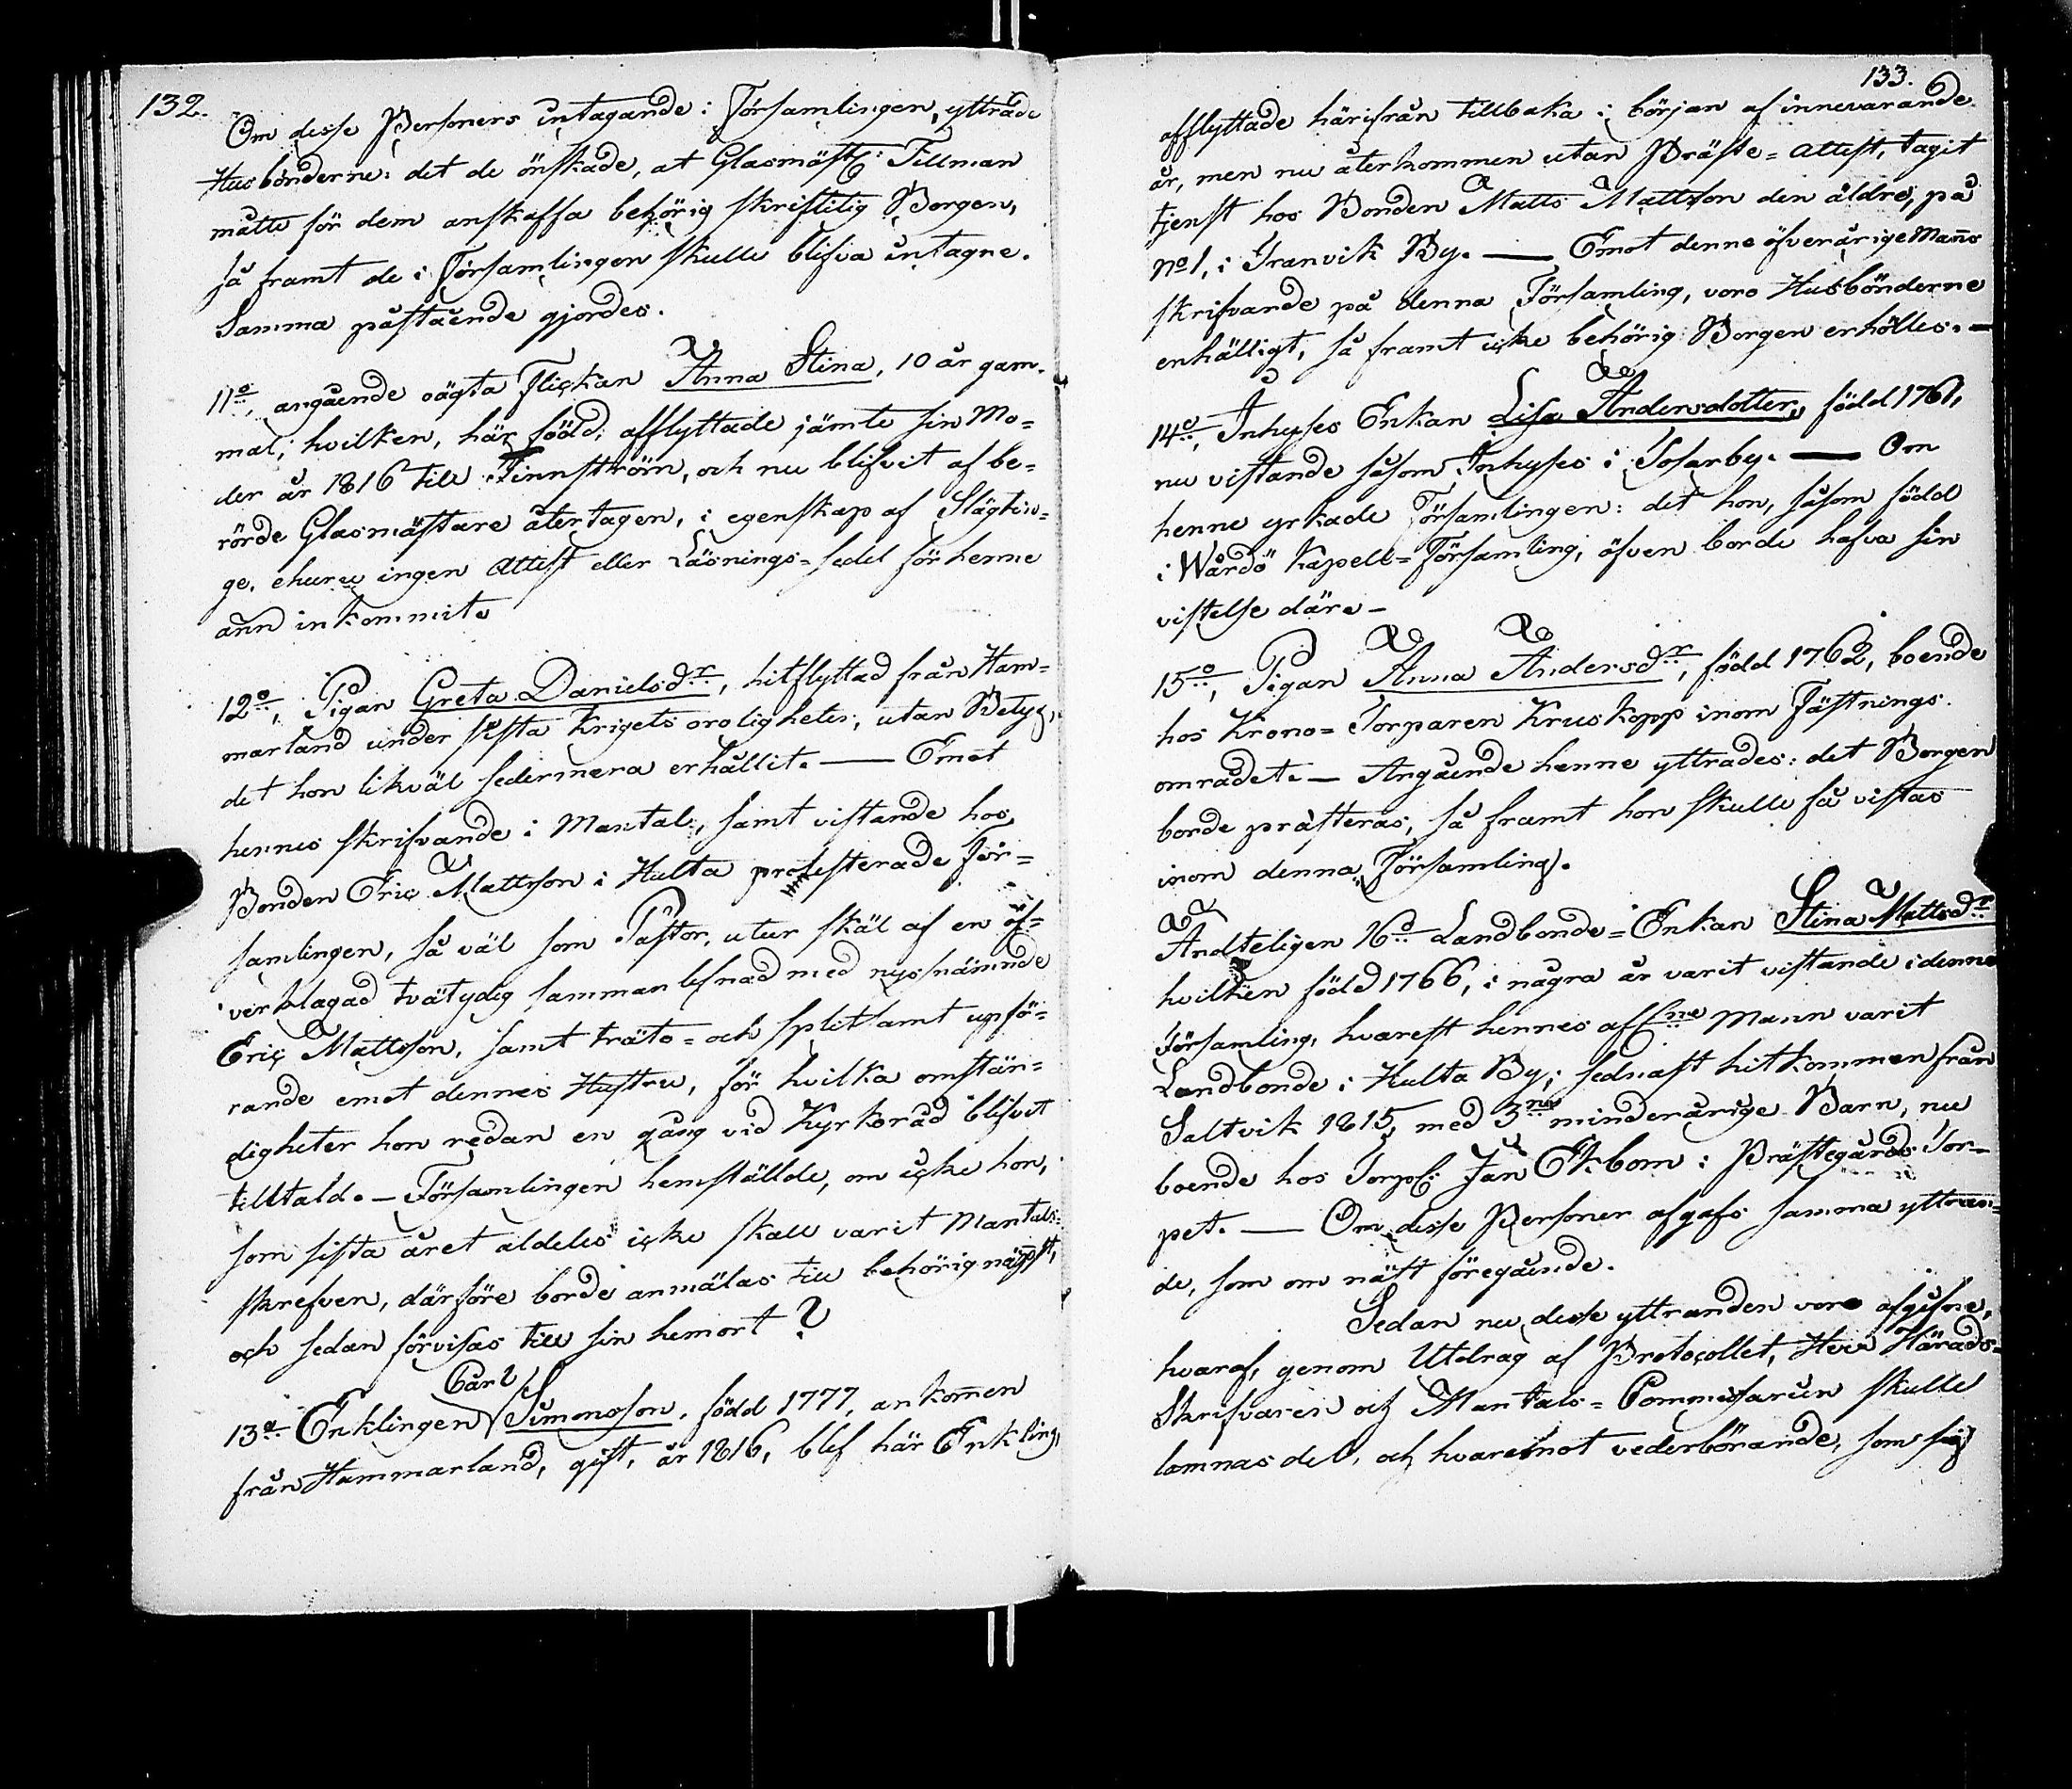 132.
Om desse Personers intagande i Församlingen, yttrade
Husbönderne: det de önskade, at Glasmäst: Tillman
måtte för dem anskaffa behörig skriftelig Borgen,
så framt de i Församlingen skulle blifva intagne.
Samma påstående gjordes.
11:o, angående oägta Flickan Anna Stina, 10 år gam-
mal; hvilken, här född, afflyttade jämte sin Mo=
der år 1816 till Finnström, och nu blifvit af be=
rörde Glasmästare återtagen, i egenskap af Slägtin=
ge, ehuru ingen Attest eller Läsnings=sedel för henne
änn inkommit.
12:o, Pigan Greta Danielsd:r, hitflyttad från Ham=
marland under sista Krigets oroligheter, utan Betyg,
det hon likväl sedermera erhållit. — Emot
hennes skrifvande i Mantal, samt vistande hos
Bonden Eric Mattsson i Hulta protesterade För=
samlingen, så väl som Pastor, utur skäl af en öf=
verklagad tvätydig sammanlefnad med nyssnämnde
Eric Mattsson, samt träto= och splitsamt upfö=
rande emot dennes Hustru, för hvilka omstän=
digheter hon redan en gång vid Kyrkoråd blifvit
tilltald. — Församlingen hemställde, om icke hon,
som sista året aldeles icke skall varit Mantals=
skrefven, därföre borde anmälas till behörig näpst,
och sedan förvisas till sin hemort?
13:o Enklingen Carl Simonsson, född 1777, ankommen
från Hammarland, gift, år 1816, blef här Enkling,
133.
afflyttade härifrån tillbaka i början af innevarande
år, men nu återkommen utan Präste=Attest, tagit
tjenst hos Bonden Matts Mattsson den äldre, på
No 1, i Tranvik By. — Emot denne öfverårige Mans
skrifvande på denna Församling, voro Husbönderne
enhälligt, så framt icke behörig Borgen erhölles. —
14:o, Inhyses Enkan Lisa Andersdotter, född 1761,
nu vistande såsom Inhyses i Tosarby. — Om
henne yrkade Församlingen: det hon, såsom född
i Wårdö Kapell=Församling, äfven borde hafva sin
vistelse där. —
15:o, Pigan Anna Andersd:r, född 1762, boende
hos Krono=Torparen Kruskopp inom Fästnings-
området. — Angående henne yttrades: det Borgen
borde præsteras, så framt hon skulle få vistas
inom denna Församling.
Ändteligen 16:o Landbonde=Enkan Stina Mattsd:r
hvilken född 1766, i några år varit vistande i denna
Församling, hvarest hennes afl:ne Mann varit
Landbonde i Hulta By; sednast hitkommen från
Saltvik 1815, med 3:ne minderårige Barn, nu
boende hos Torp: Jan Ekbom i Prästegårds Tor=
pet. — Om desse Personer afgafs samma yttran=
de, som om näst föregående.
Sedan nu desse yttranden voro afgifne,
hvaraf, genom Utdrag af Protocollet, Herr Härads=
Skrifvaren och Mantals=Commissarien skulle
lämnas del, och hvaremot vederbörande, som sig